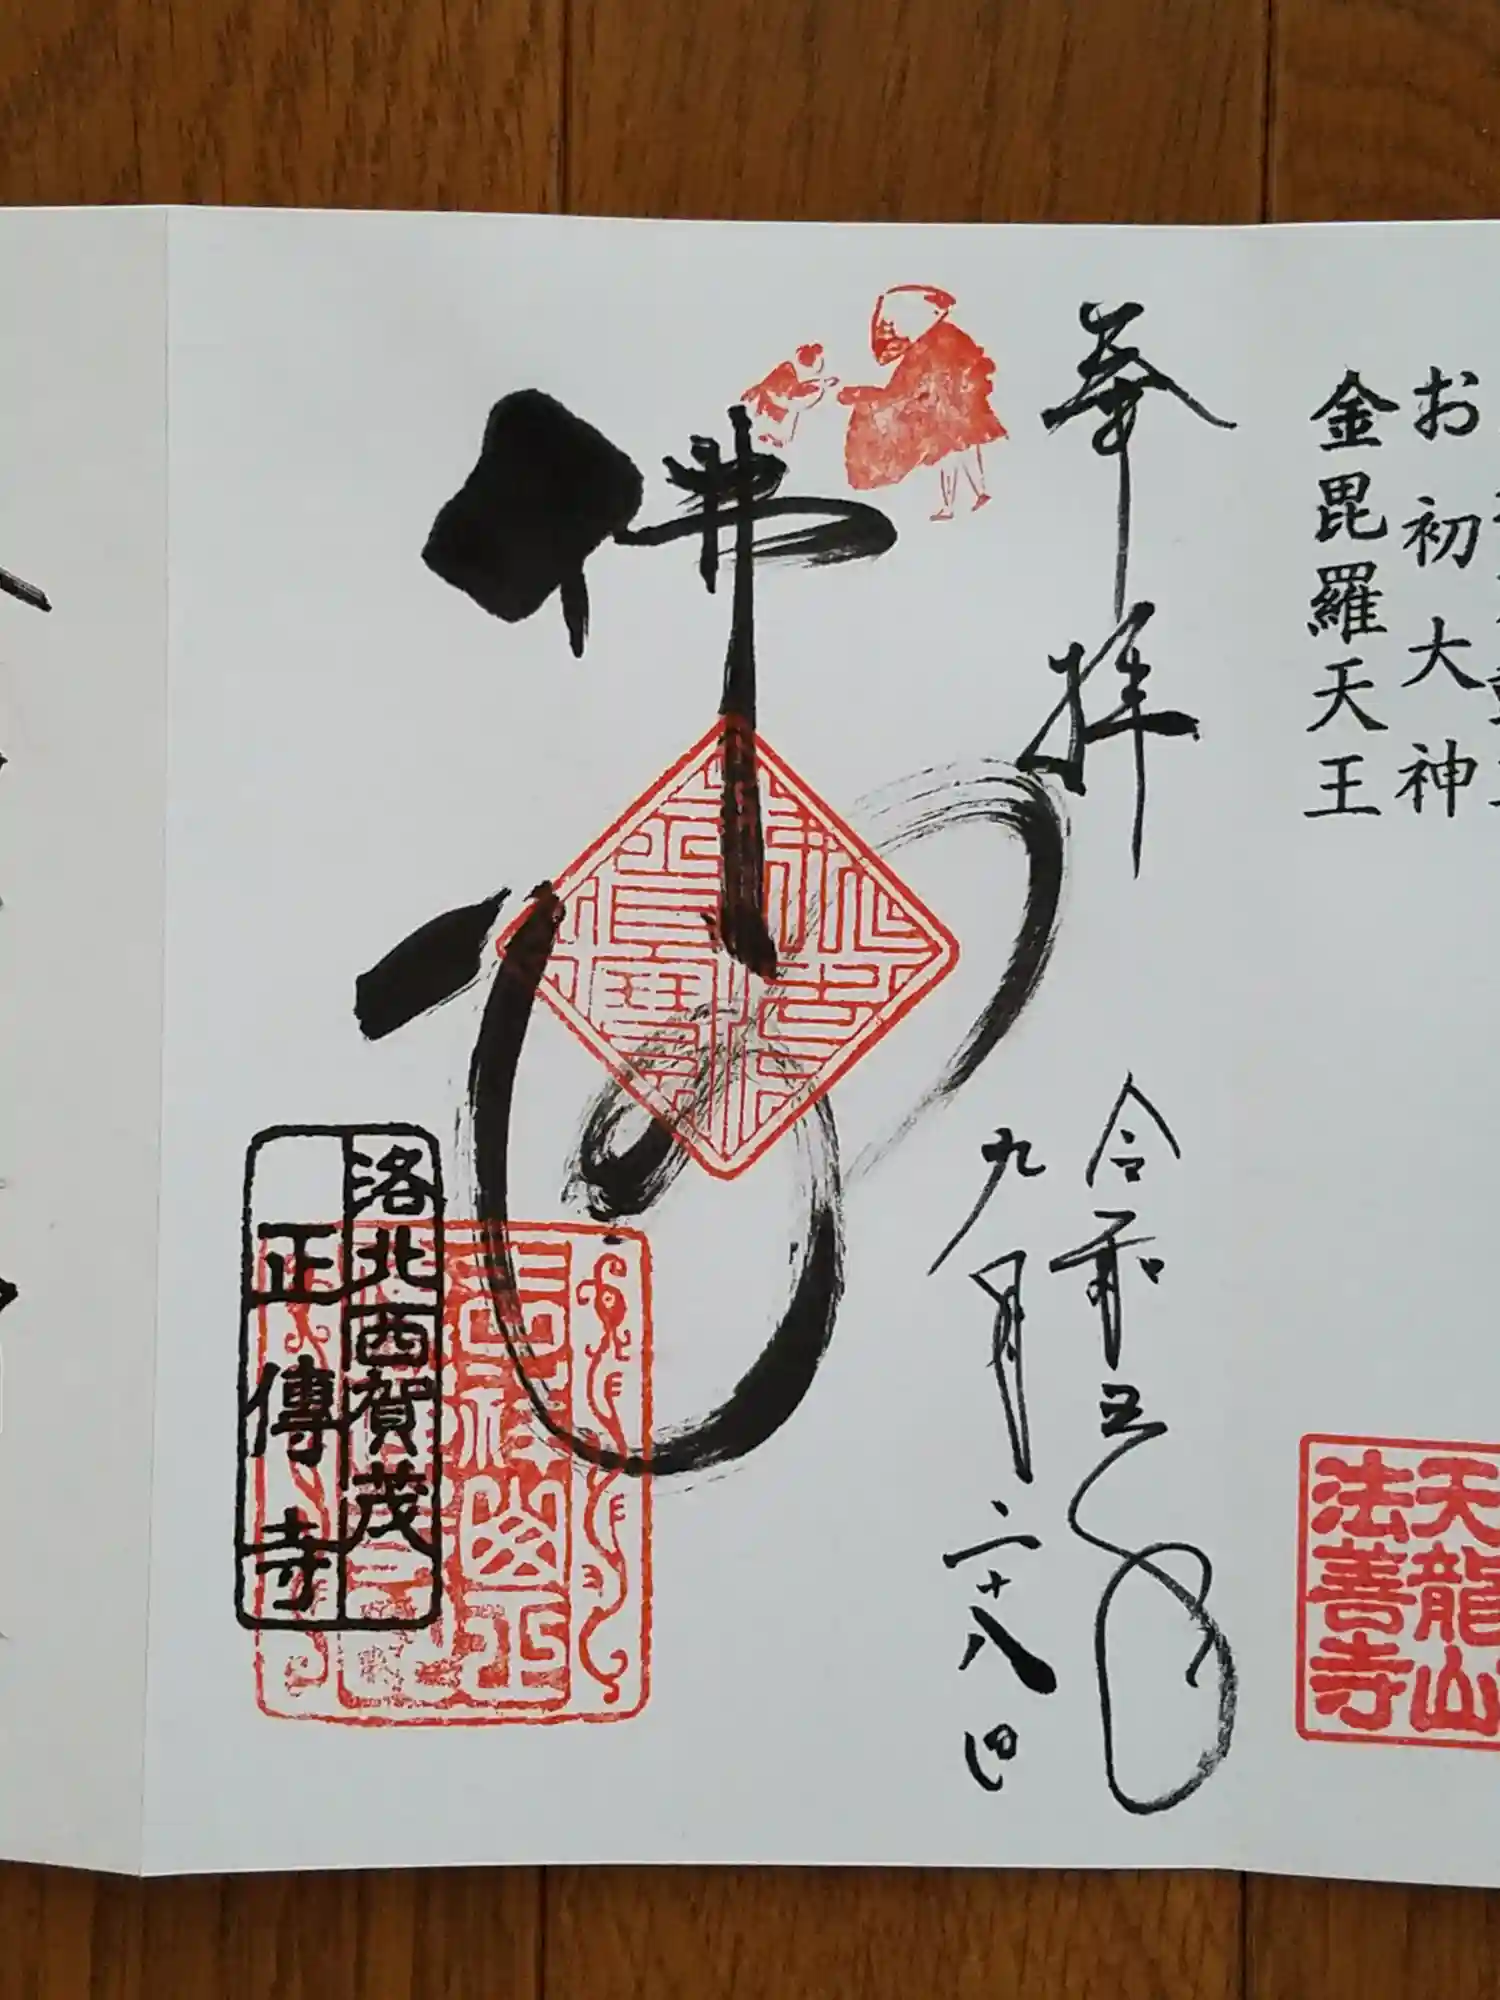 お初大神
金毘羅天王
天龍山
法善寺
奉拝
令和五年
九月二十八日
佛法
僧寳
吉祥山正
洛北西賀茂
正傳寺